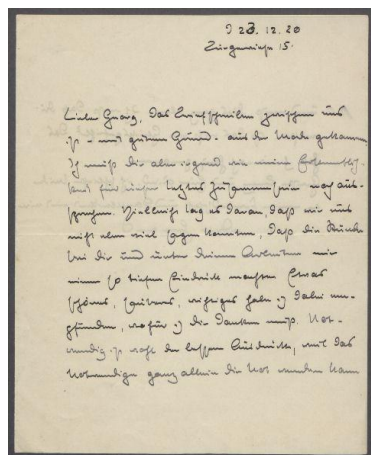 D 23.12.20
Zürgeriche 15.
Lieber Georg, das Briefschreiben zwischen uns
ist – mit gutem Grund – aus der Mode gekommen,
Ich muß dir aber irgend wie meine
für unser letztes Zusammensein noch aus-
sprechen. Vielleicht lag es daran, daß wir uns
nicht eben viel sagen konnten, daß die Stunden
bei dir und unter deinen Arbeiten mir
einen so tiefen Eindruck machten. Etwas
schönes, sauberes, richtiges habe ich dabei em-
pfunden, wofür ich dir danken muß. Not-
wendig ist wohl der beste Ausdruck, weil das
Notwendige ganz allein die Not wenden kann